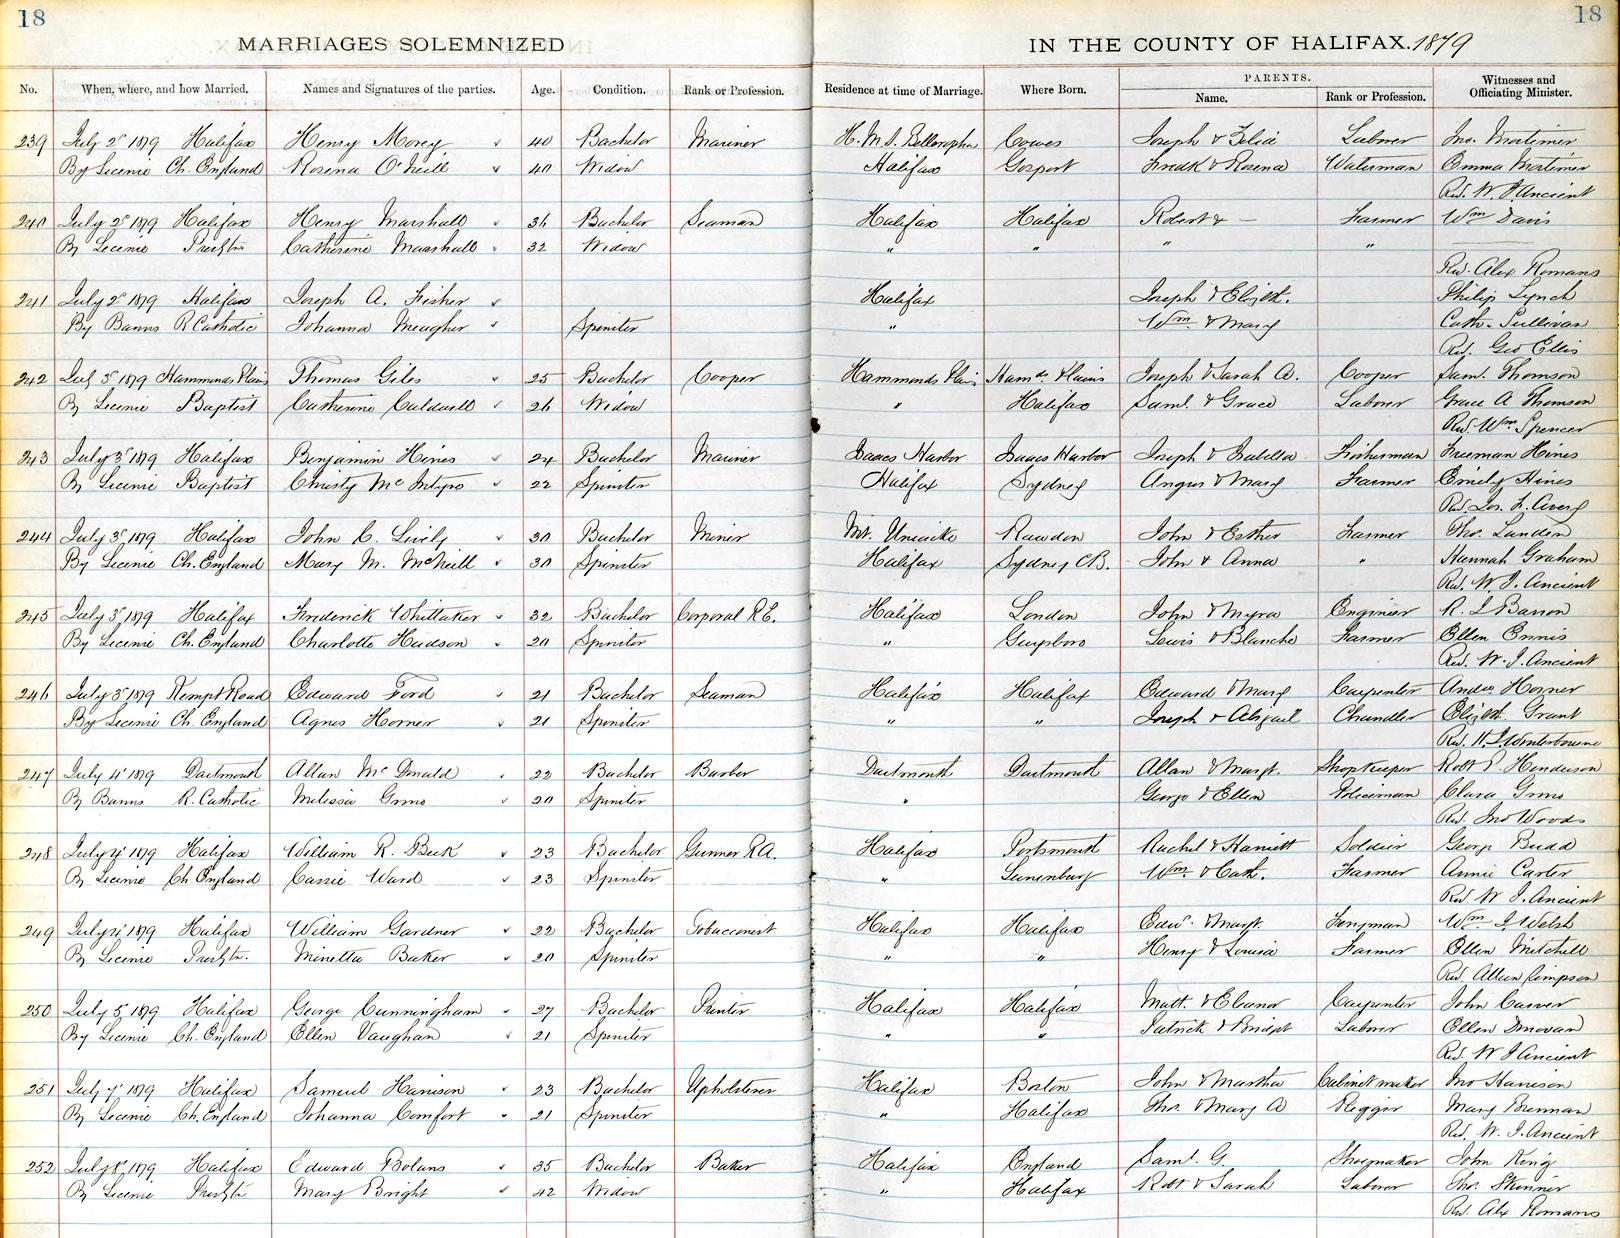 18 18
MARRIAGES SOLEMNIZED IN THE COUNTY OF HALIFAX. 1879
PARENTS.
No. When, where, and how Married. Names and Signatures of the parties. Age. Condition. Rank or Profession. Residence at time of Marriage. Where Born. Name. Rank or Profession. Witnesses and Officiating Minister.
239 July 2d 1879 Halifax Henry Morey 40 Bachelor Mariner H. M. S. Bellerophon Cowes Joseph & Laborer Jno. Mortimer
By Licence Ch. England Rosena O'Neill 40 Widow Halifax Gosport Fredk & Rosena Waterman Emma Mortimer
Rev. W. J. Ancient
240 July 2d 1879 Halifax Henry Marshall 36 Bachelor Seaman Halifax Halifax Robert & — Farmer Wm Davis
By Licence Presbtn Catherine Marshall 32 Widow " " " "
Rev. Alex Romans
241 July 2d 1879 Halifax Joseph A. Fisher Halifax Joseph & Elizth. Philip Lynch
By Banns R Catholic Johanna Meagher Spinster " Wm & Mary Cath. Sullivan
Rev. Geo Ellis
242 July 3d 1879 Hammonds Plains Thomas Giles 25 Bachelor Cooper Hammonds Plains Hamds Plains Joseph & Sarah A. Cooper Saml. Thomson
By Licence Baptist Catherine Caldwell 26 Widow " Halifax Saml. & Grace Laborer Grace A Thomson
Rev. Wm Spencer
243 July 3d 1879 Halifax Benjamin Hines 24 Bachelor Mariner Isaacs Harbor Isaacs Harbor Joseph & Isabella Fisherman Freeman Hines
By Licence Baptist Christy McIntyre 22 Spinster Halifax Sydney Angus & Mary Farmer Emily Hines
Rev. Jos. F. Avery
244 July 3d 1879 Halifax John C. Lively 30 Bachelor Miner Mt. Uniacke Rawdon John & Esther Farmer Tho. Landen
By Licence Ch. England Mary M. McNeill 30 Spinster Halifax Sydney C.B. John & Anna " Hannah Graham
Rev. W. J. Ancient
245 July 3d 1879 Halifax Frederick Whittaker 32 Bachelor Corporal R.E. Halifax London John & Myra Engineer R. L Barron
By Licence Ch. England Charlotte Hudson 20 Spinster " Guysboro Lewis & Blanche Farmer Ellen Ennis
Rev. W. J. Ancient
246 July 3d 1879 Kempt Road Edward Ford 21 Bachelor Seaman Halifax Halifax Edward & Mary Carpenter Andw Horner
By Licence Ch. England Agnes Horner 21 Spinster " " Joseph & Abigail Chandler Elizth. Grant
Rev. H. J. Winterbourne
247 July 4th 1879 Dartmouth Allan McDonald 22 Bachelor Barber Dartmouth Dartmouth Allan & Margt. Shopkeeper Robt P. Henderson
By Banns R. Catholic Melissa Grono 20 Spinster " George & Ellen Policeman Clara Grono
Rev. Jno Woods
248 July 4th 1879 Halifax William R. Beck 23 Bachelor Gunner R.A. Halifax Portsmouth Rachel & Harriett Soldier George Budd
By Licence Ch. England Cassie Ward 23 Spinster " Lunenburg Wm. & Cath. Farmer Annie Carter
Rev. W J. Ancient
249 July 4th 1879 Halifax William Gardner 22 Bachelor Tobacconist Halifax Halifax Edwd. & Margt. Wm J. Welsh
By Licence Presbtn. Minetta Baker 20 Spinster " " Henry & Louisa Farmer Ellen Mitchell
Rev Allan Simpson
250 July 5 1879 Halifax George Cunningham 27 Bachelor Printer Halifax Halifax Matt. & Eleanor Carpenter John Carver
By Licence Ch. England Ellen Vaughan 21 Spinster " " Patrick & Bridgt Laborer Ellen Donovan
Rev. W J Ancient
251 July 7th 1879 Halifax Samuel Harrison 23 Bachelor Upholsterer Halifax Boston John & Martha Cabinet maker Jno Harrison
By Licence Ch. England Johanna Comfort 21 Spinster " Halifax Thos. & Mary A Rigger Mary Brennan
Rev. W. J. Ancient
252 July 8th 1879 Halifax Edward Bolans 35 Bachelor Baker Halifax England Saml. G. Shoemaker John King
By Licence Presbtn Mary Bright 42 Widow " Halifax Robt & Sarah Laborer Tho. Skinner
Rev. Alex Romans